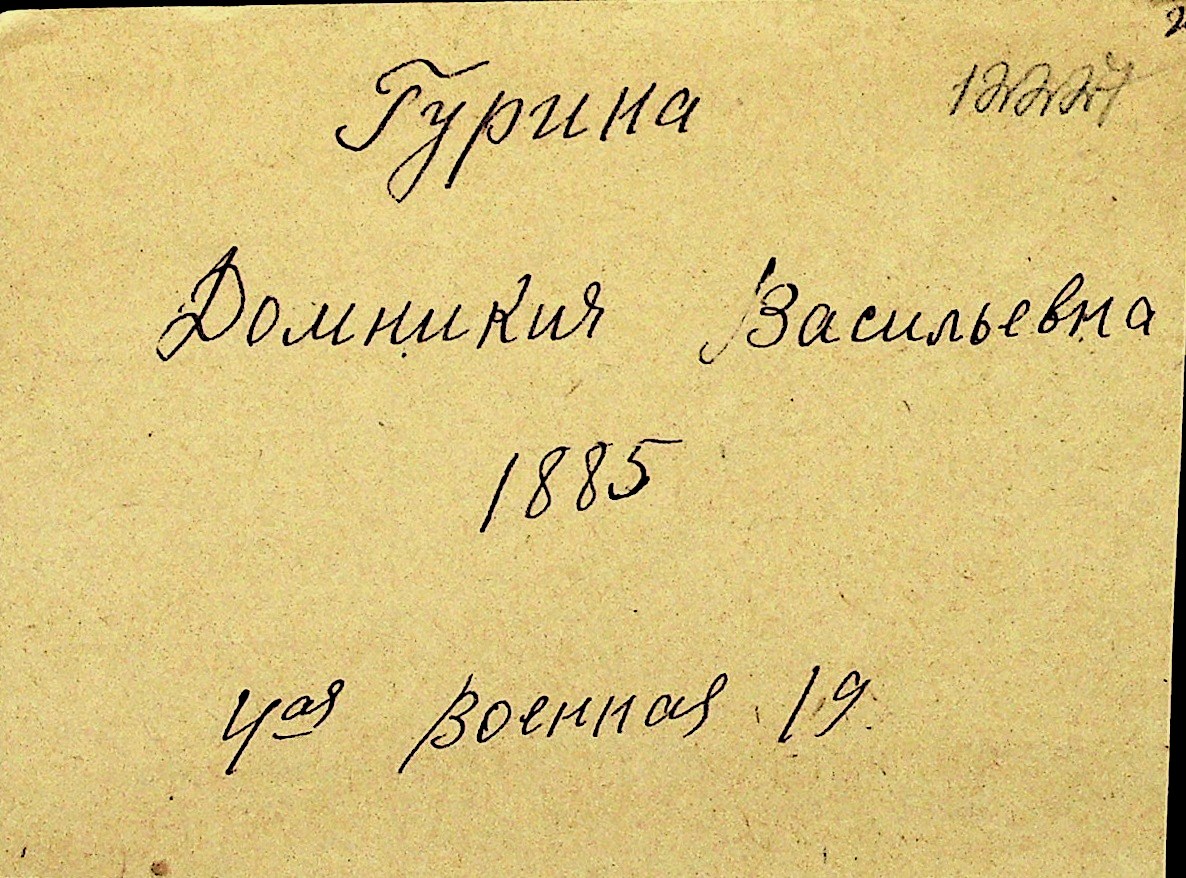 12227
Гурина
Домникия Васильевна
1885
4ая Военная 19.